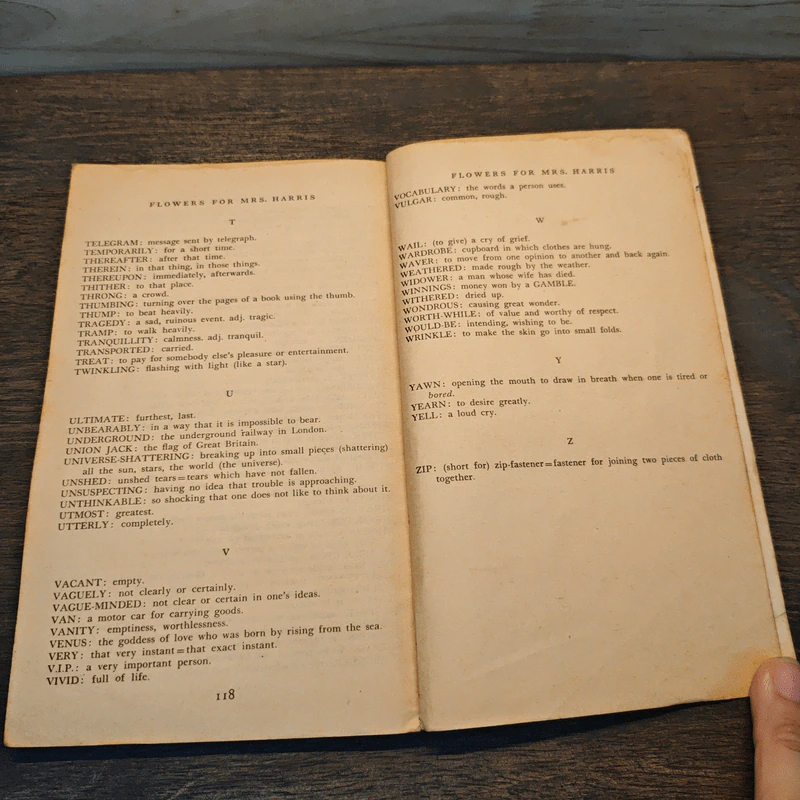 FLOWERS FOR MRS. HARRIS
T
TELEGRAM: message sent by telegraph.
TEMPORARILY: for a short time.
THEREAFTER: after that time.
THEREIN: in that thing, in those things.
THEREUPON: immediately, afterwards.
THITHER: to that place.
THRONG: a crowd.
THUMBING: turning over the pages of a book using the thumb.
THUMP: to beat heavily.
TRAGEDY: a sad, ruinous event. adj. tragic.
TRAMP: to walk heavily.
TRANQUILLITY: calmness. adj. tranquil.
TRANSPORTED: carried.
TREAT: to pay for somebody else's pleasure or entertainment.
TWINKLING: flashing with light (like a star).
U
ULTIMATE: furthest, last.
UNBEARABLY: in a way that it is impossible to bear.
UNDERGROUND: the underground railway in London.
UNION JACK: the flag of Great Britain.
UNIVERSE-SHATTERING: breaking up into small pieces (shattering)
all the sun, stars, the world (the universe).
UNSHED: unshed tears=tears which have not fallen.
UNSUSPECTING: having no idea that trouble is approaching.
UNTHINKABLE: so shocking that one does not like to think about it.
UTMOST: greatest.
UTTERLY: completely.
V
VACANT: empty.
VAGUELY: not clearly or certainly.
VAGUE-MINDED: not clear or certain in one's ideas.
VAN: a motor car for carrying goods.
VANITY: emptiness, worthlessness.
VENUS: the goddess of love who was born by rising from the sea.
VERY: that very instant=that exact instant.
V.I.P.: a very important person.
VIVID: full of life.
118
FLOWERS FOR MRS. HARRIS
VOCABULARY: the words a person uses.
VULGAR: common, rough.
W
WAIL: (to give) a cry of grief.
WARDROBE: cupboard in which clothes are hung.
WAVER: to move from one opinion to another and back again.
WEATHERED: made rough by the weather.
WIDOWER: a man whose wife has died.
WINNINGS: money won by a GAMBLE.
WITHERED: dried up.
WONDROUS: causing great wonder.
WORTH-WHILE: of value and worthy of respect.
WOULD-BE: intending, wishing to be.
WRINKLE: to make the skin go into small folds.
Y
YAWN: opening the mouth to draw in breath when one is tired or
bored.
YEARN: to desire greatly.
YELL: a loud cry.
Z
ZIP: (short for) zip-fastener=fastener for joining two pieces of cloth
together.